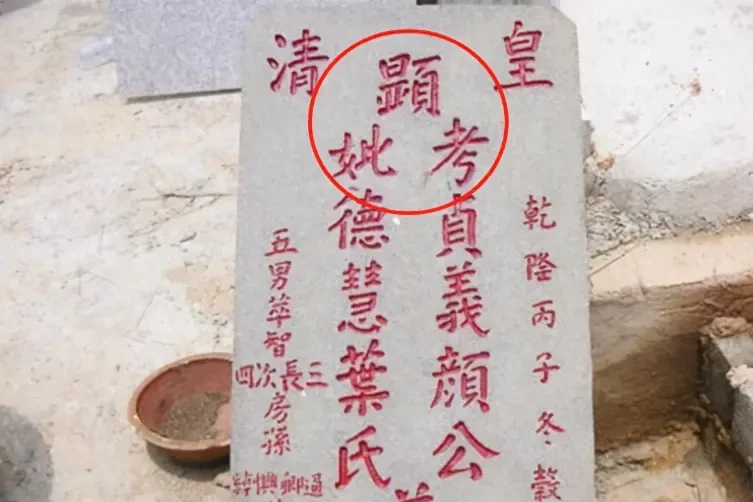 皇清
乾隆丙子冬穀
顯
考貞義顏公
妣德慧葉氏
五男萃智
三長次四
房孫